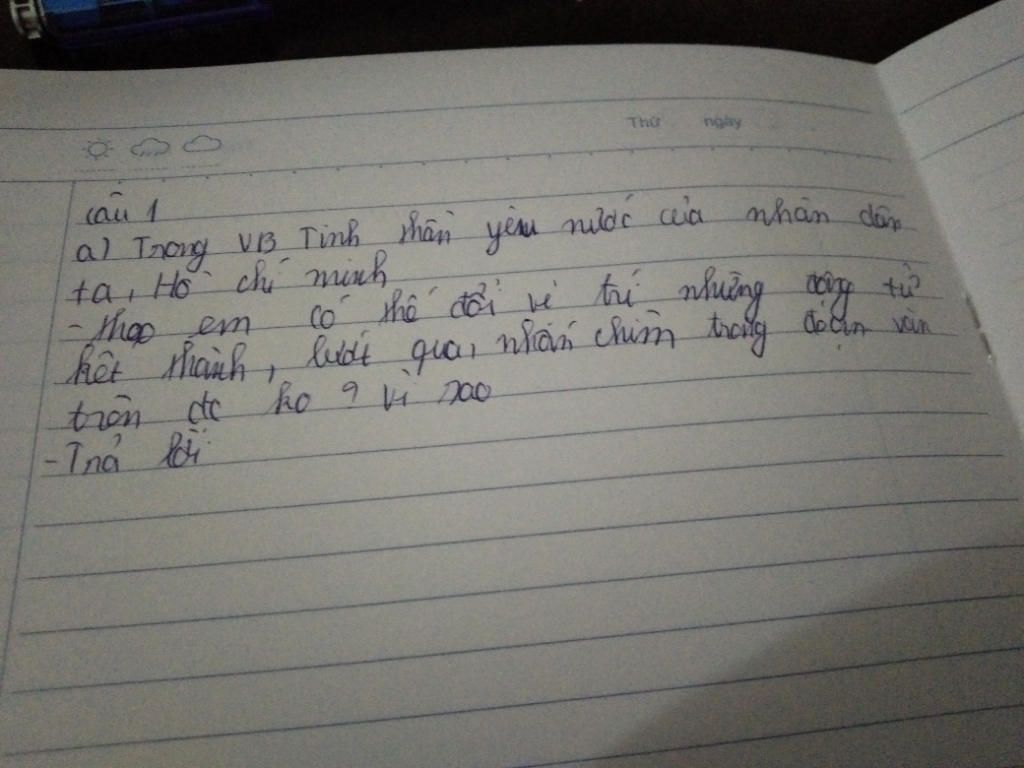 Thứ ngày
Câu 1
a) Trong VB Tinh thần yêu nước của nhân dân
ta, Hồ chí minh
- theo em có thể đổi vị trí những động từ
kết thành, lướt qua, nhấn chìm trong đoạn văn
trên đc ko? Vì sao
- Trả lời